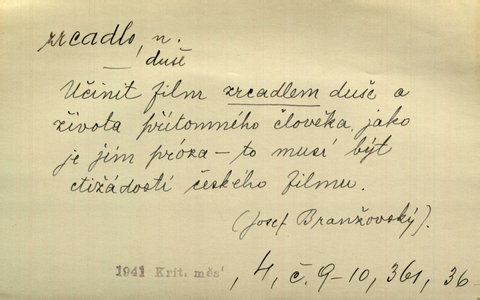 zrcadlo, n.
— duše
Učinit film zrcadlem duše a
života přítomného člověka, jako
je jím próza – to musí být
ctižádostí českého filmu.
(Josef Branžovský).
1941 Krit. měs', 4, č. 9-10, 361, 36-